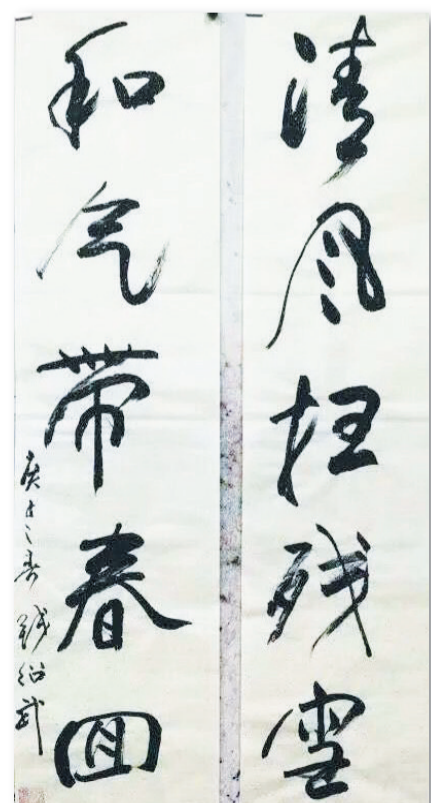 清风扫残雪
和气带春回
庚之春 钱绍武